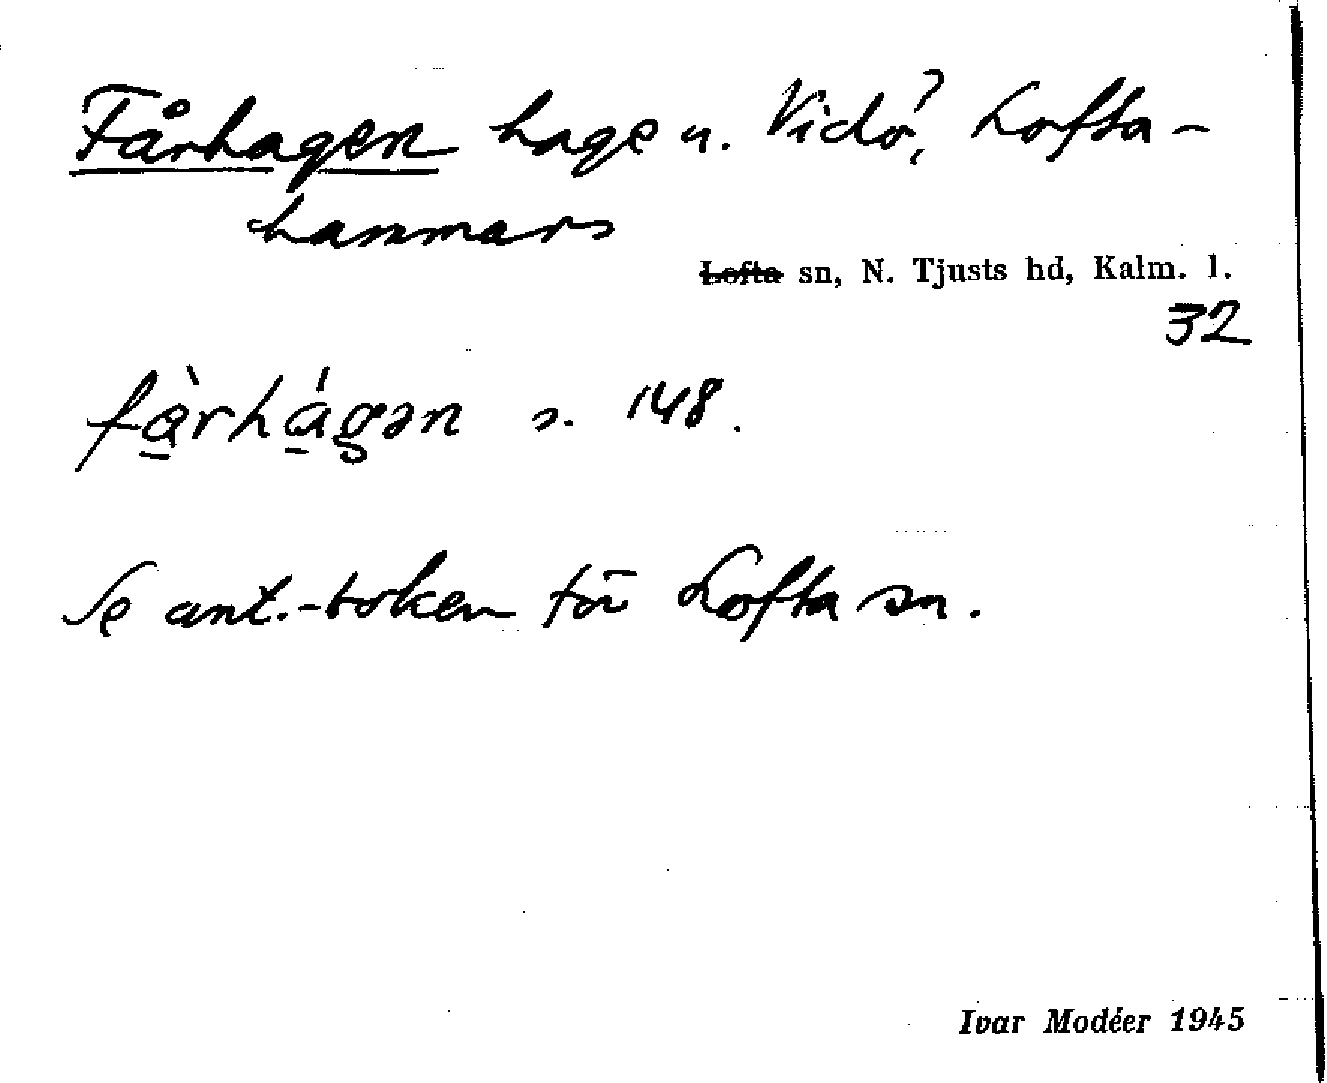 Fårhagen hage u. Vidö?, Lofta-
hammars
Lofta sn, N. Tjusts hd, Kalm. l.
32
fà̱rhá̱gən s. 148.
Se ant.-boken för Lofta sn.
Ivar Modéer 1945